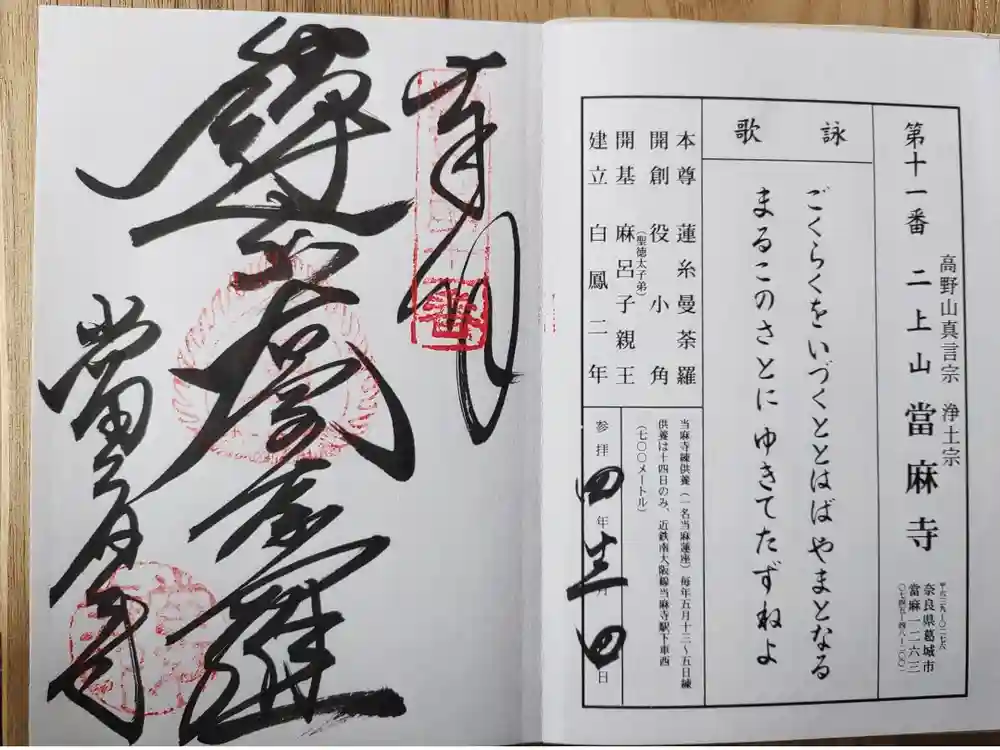 高野山真言宗 浄土宗
第十一番 二上山 當麻寺
〒六三九-〇二七六
奈良県葛城市
當麻一二六三
〇七四五-四八-二〇〇一
詠歌
ごくらくをいづくととはばやまとなる
まるこのさとにゆきてたずねよ
本尊 蓮糸曼荼羅
開創 役小角
開基 麻呂子親王
(聖徳太子弟)
建立 白鳳二年
当麻寺練供養(一名当麻蓮座)毎年五月十三〜五日練
供養は十四日のみ、近鉄南大阪線当麻寺駅下車西
(七〇〇メートル)
参拝 四年 月 日
奉拝
曼荼羅
當麻寺